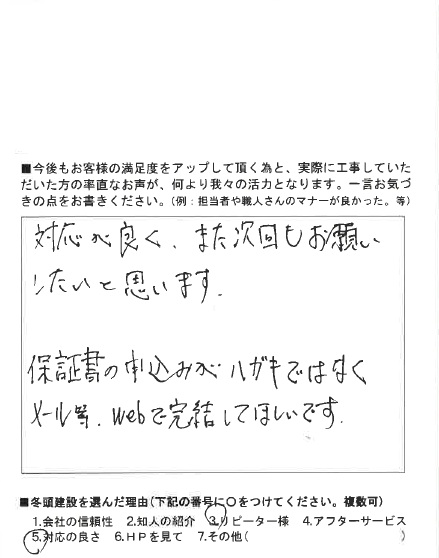 ■今後もお客様の満足度をアップして頂く為と、実際に工事していた
だいた方の率直なお声が、何より我々の活力となります。一言お気づ
きの点をお書きください。（例：担当者や職人さんのマナーが良かった。等）
対応が良く、また次回もお願い
したいと思います。
保証書の申込みがハガキではなく
メール等、webで完結してほしいです。
■冬頭建設を選んだ理由（下記の番号に〇をつけてください。複数可）
1.会社の信頼性 2.知人の紹介 3.リピーター様 4.アフターサービス
5.対応の良さ 6.ＨＰを見て 7.その他（ ）